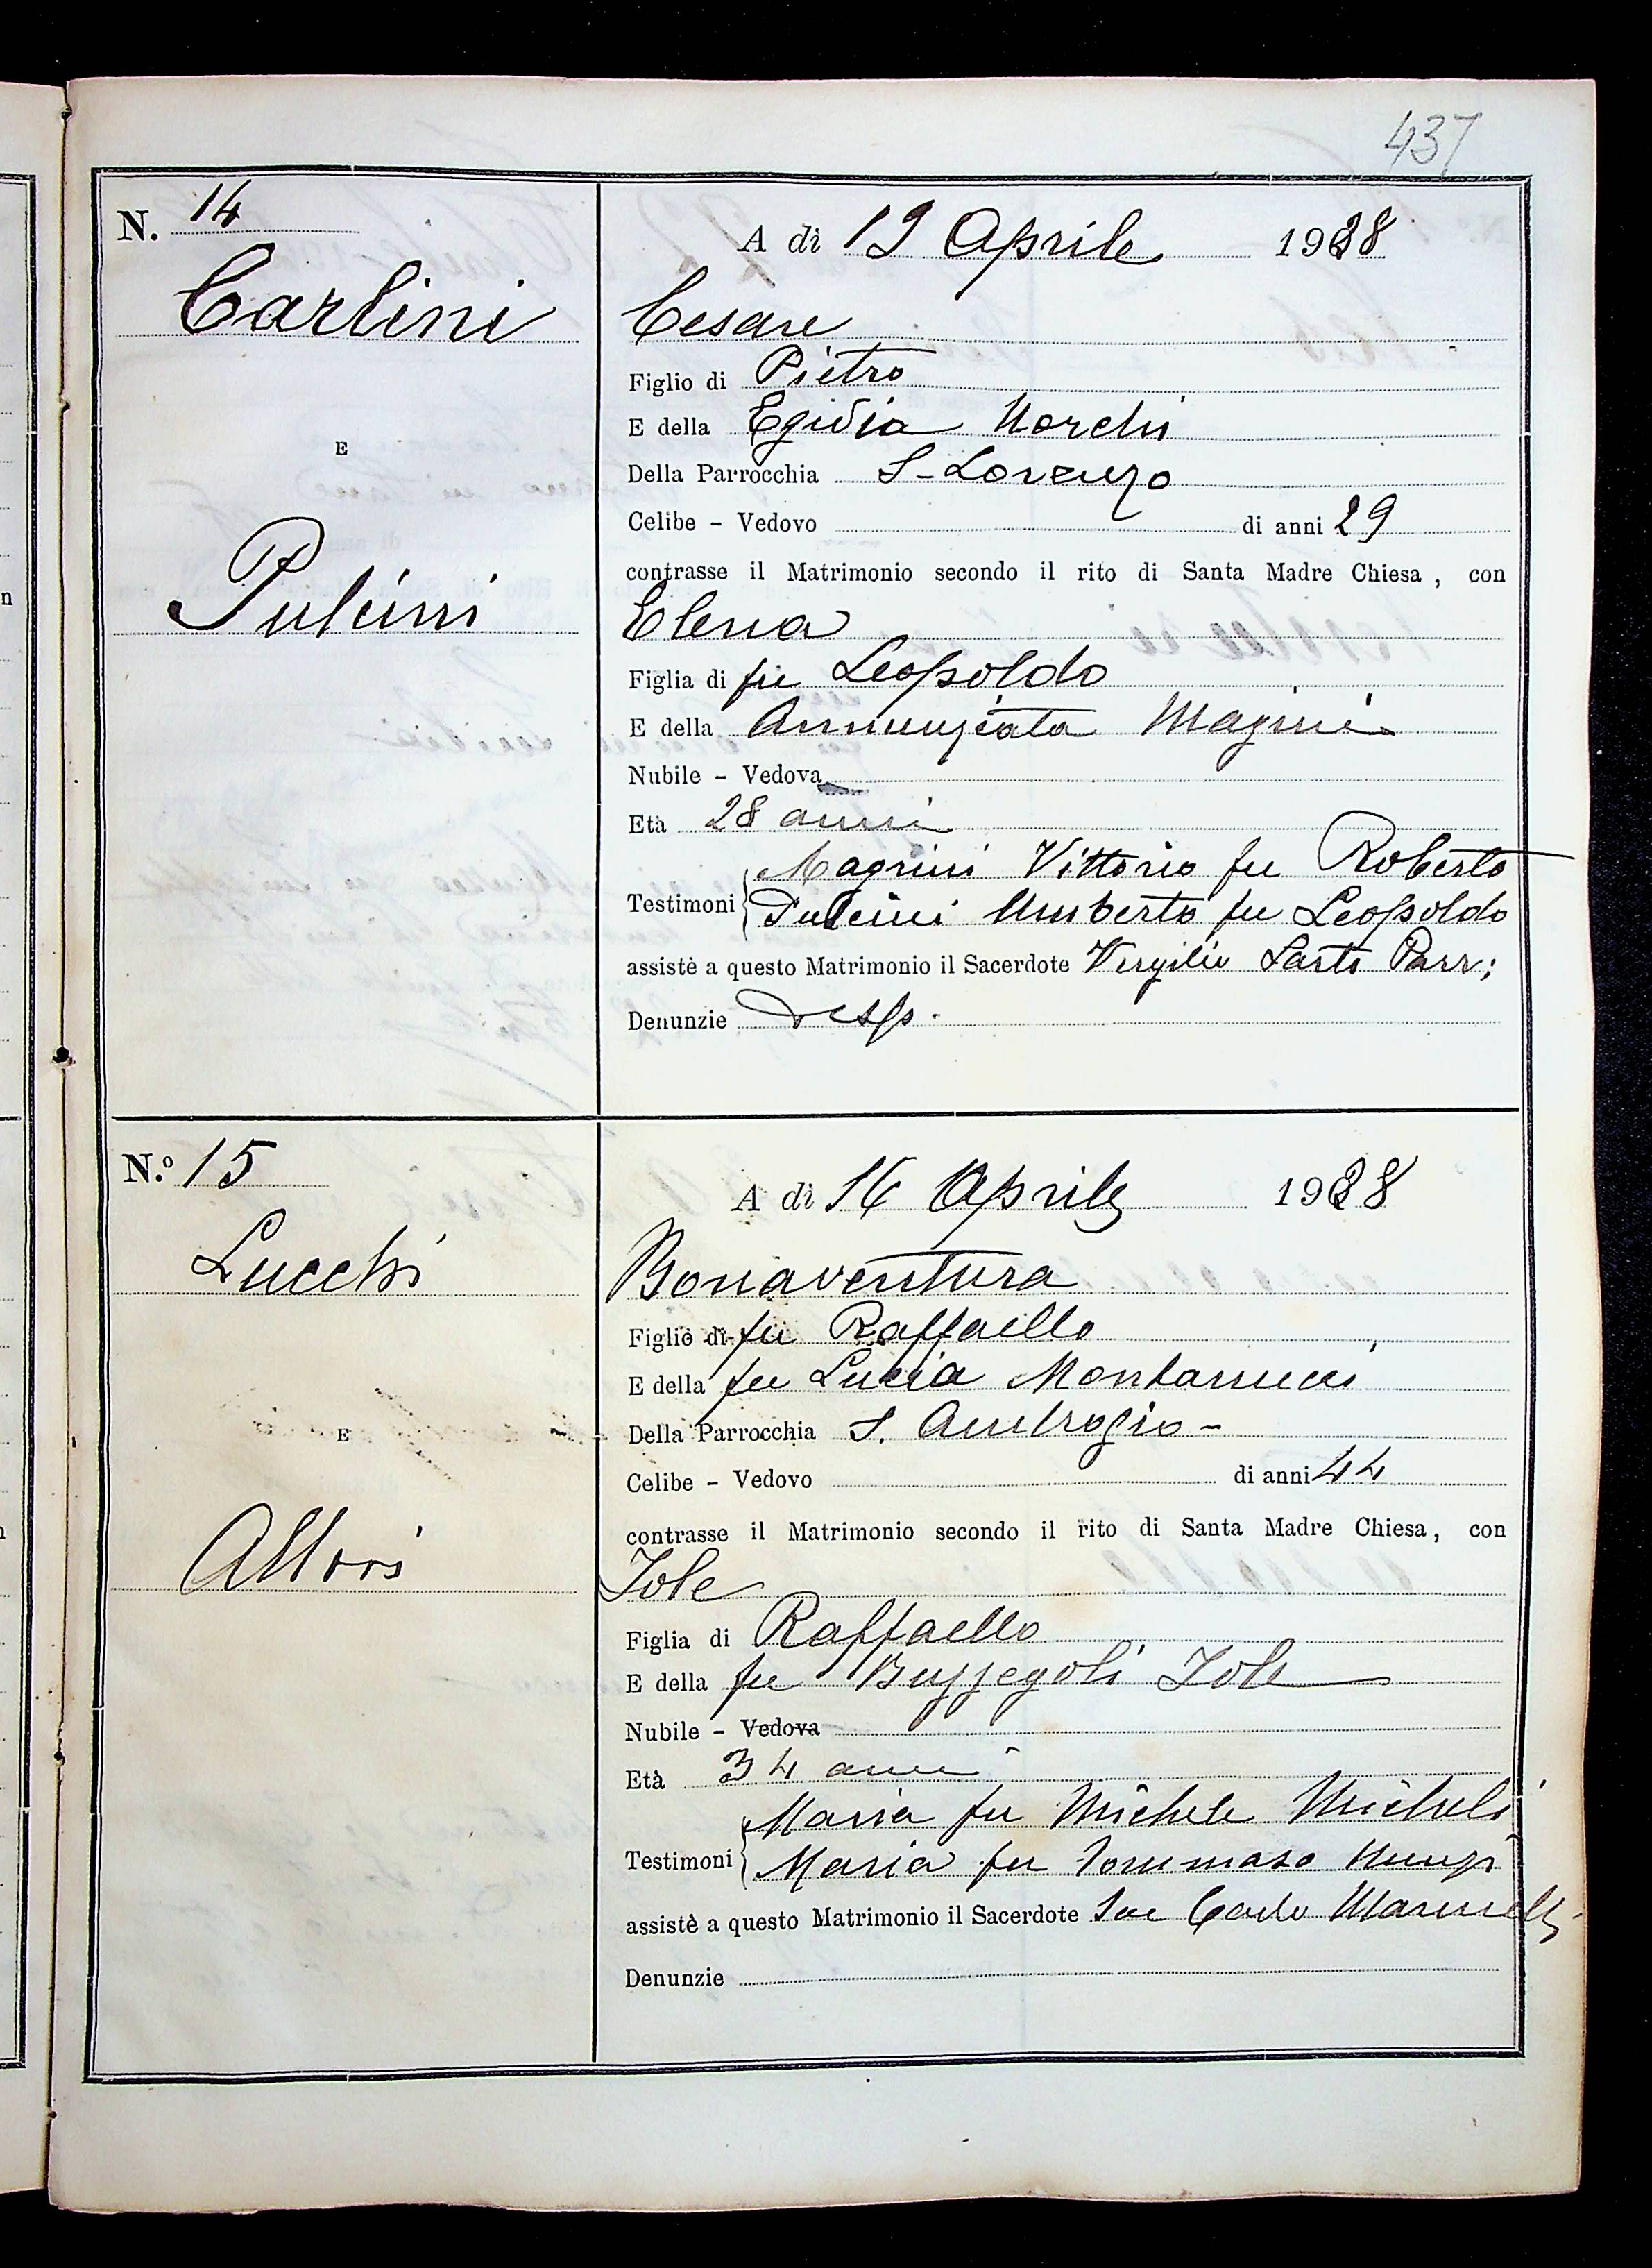 437
N. 14
A dì 19 Aprile 1938
Carlini
Cesare
Figlio di Pietro
E della Egidia Norchi
E
Della Parrocchia S-Lorenzo
Celibe - Vedovo di anni 29
contrasse il Matrimonio secondo il rito di Santa Madre Chiesa, con
Pulcini
Elena
Figlia di fu Leopoldo
E della Annunziata Magrini
Nubile - Vedova
Età 28 anni
Testimoni Magrini Vittorio fu Roberto
Pulcini Umberto fu Leopoldo
assistè a questo Matrimonio il Sacerdote Virgilio Sarti Parr:
Denunzie Desp.
N.º 15
A dì 16 Aprile 1938
Lucchi
Bonaventura
Figlio di fu Raffaello
E della fu Lucia Montanucci
Della Parrocchia S. Ambrogio -
E
Celibe - Vedovo di anni 44
contrasse il Matrimonio secondo il rito di Santa Madre Chiesa, con
Allori
Iole
Figlia di Raffaello
E della fu Buzzegoli Iole
Nubile - Vedova
Età 34 anni
Testimoni Maria fu Michele Micheli
Maria fu Tommaso Nunzi
assistè a questo Matrimonio il Sacerdote Sac Carlo
Denunzie